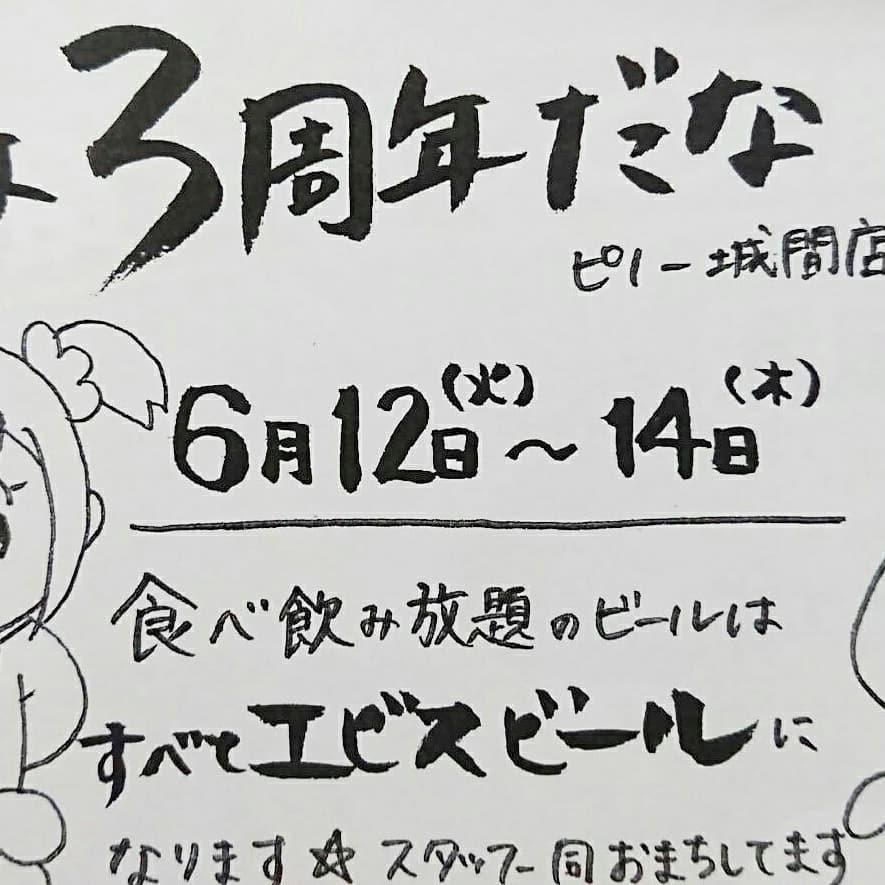 3周年だな
ピノー城間店
6月12日(火)～14日(木)
食べ飲み放題のビールは
すべてエビスビールに
なります☆スタッフ一同おまちしてます